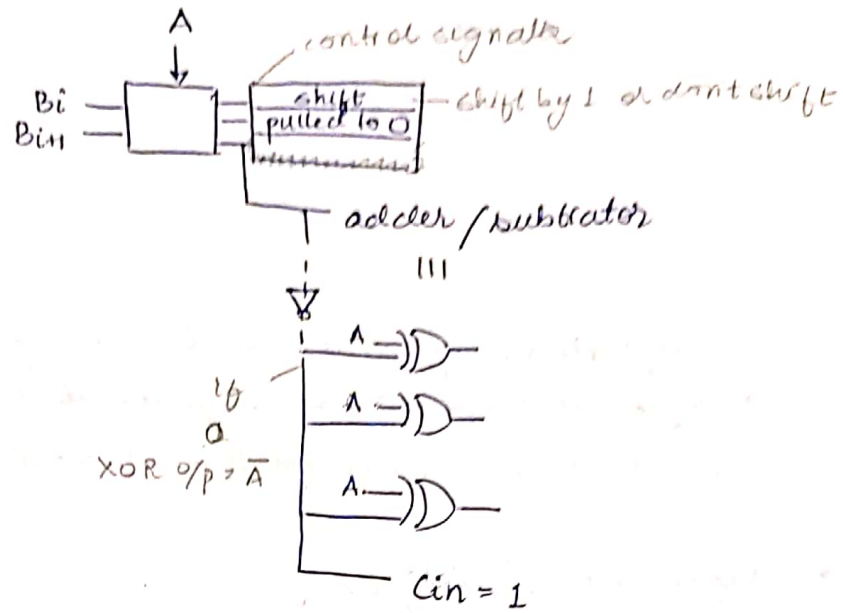 A
control signals
Bi
Bi+1
shift
pulled to 0
shift by 1 or dont shift
adder / subtrator
III
A
If
0
XOR o/p = A̅
A
A
Cin = 1